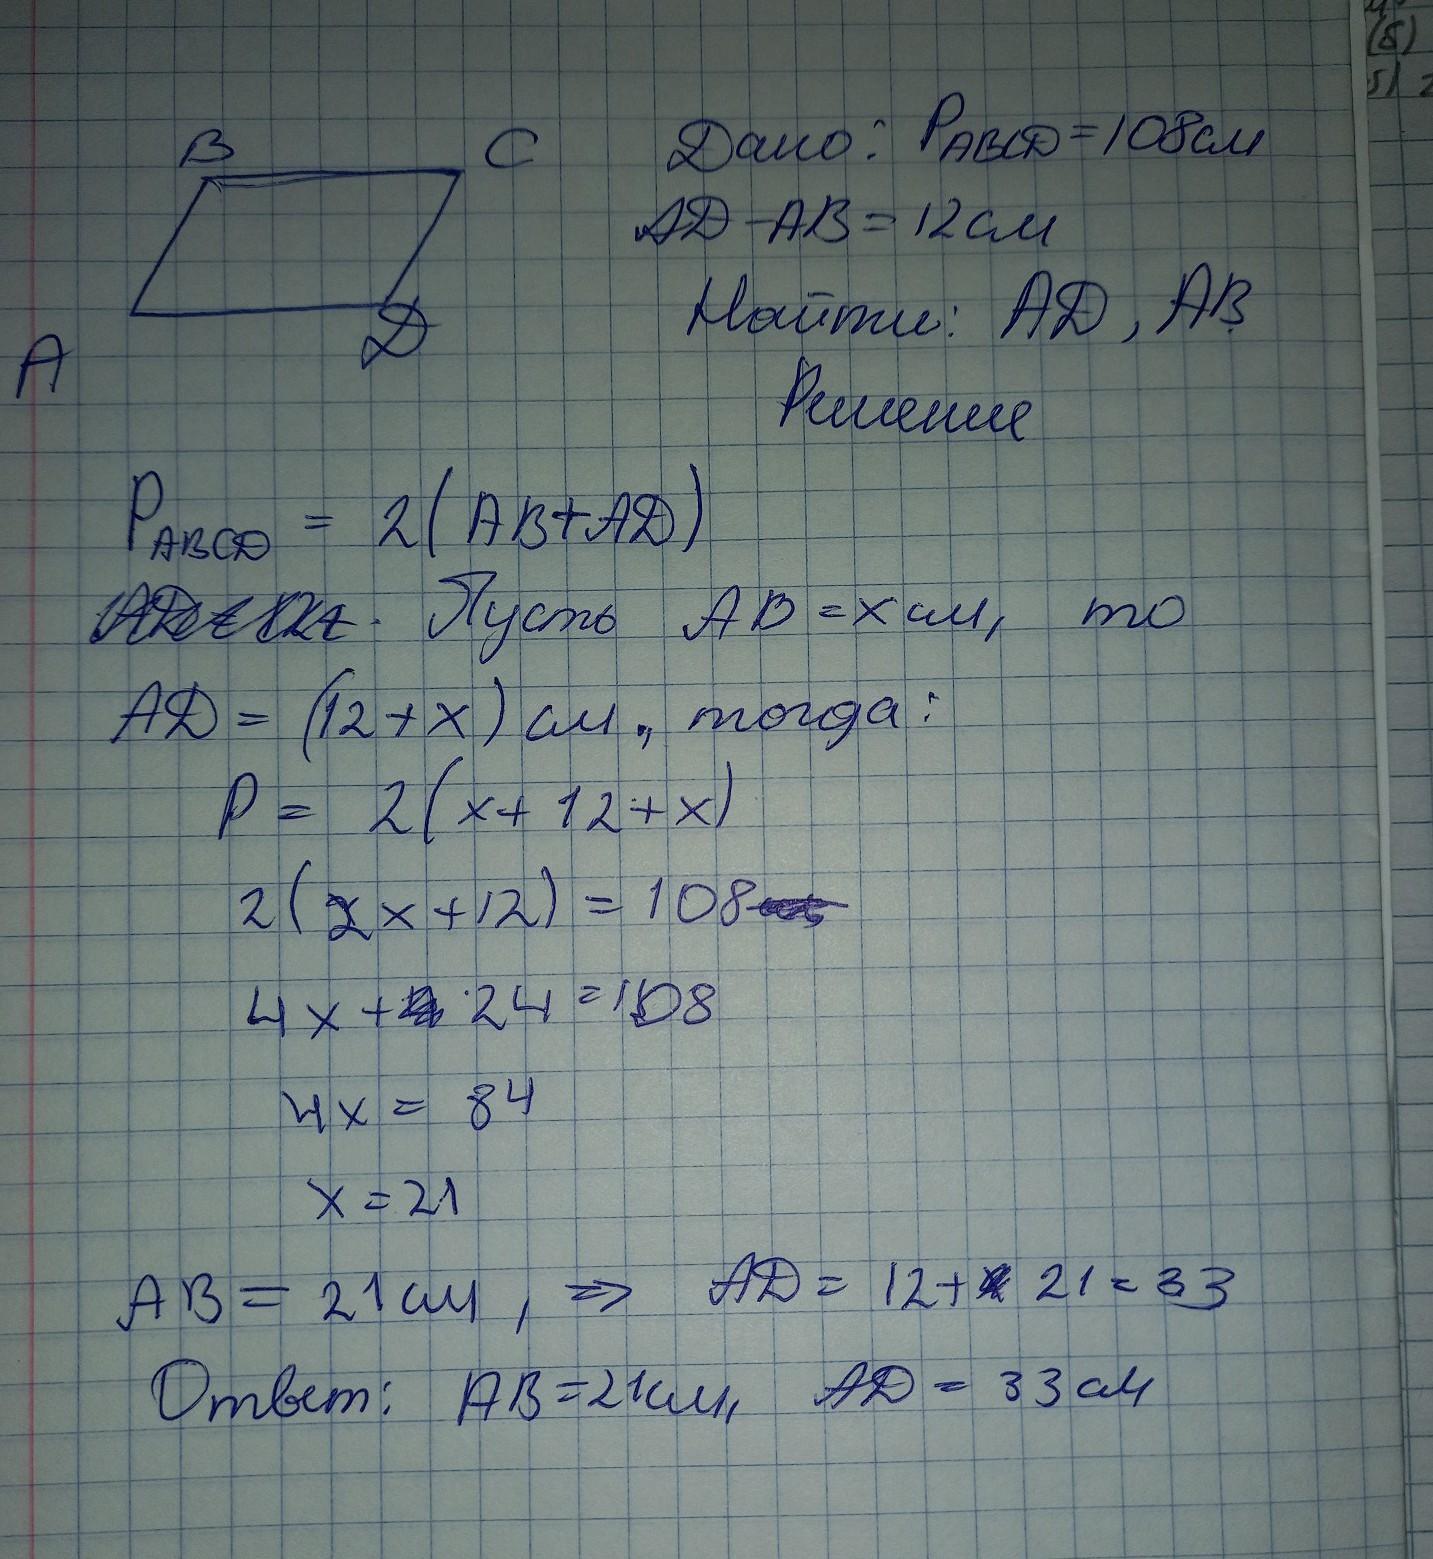 B C
Дано: P_ABCD = 108 см
AD - AB = 12 см
Найти: AD, AB
A D
Решение
P_ABCD = 2(AB+AD)
Пусть AB = x см, то
AD = (12+x) см, тогда:
P = 2(x+12+x)
2(2x+12) = 108
4x + 24 = 108
4x = 84
x = 21
AB = 21 см, => AD = 12 + 21 = 33
Ответ: AB = 21 см, AD = 33 см